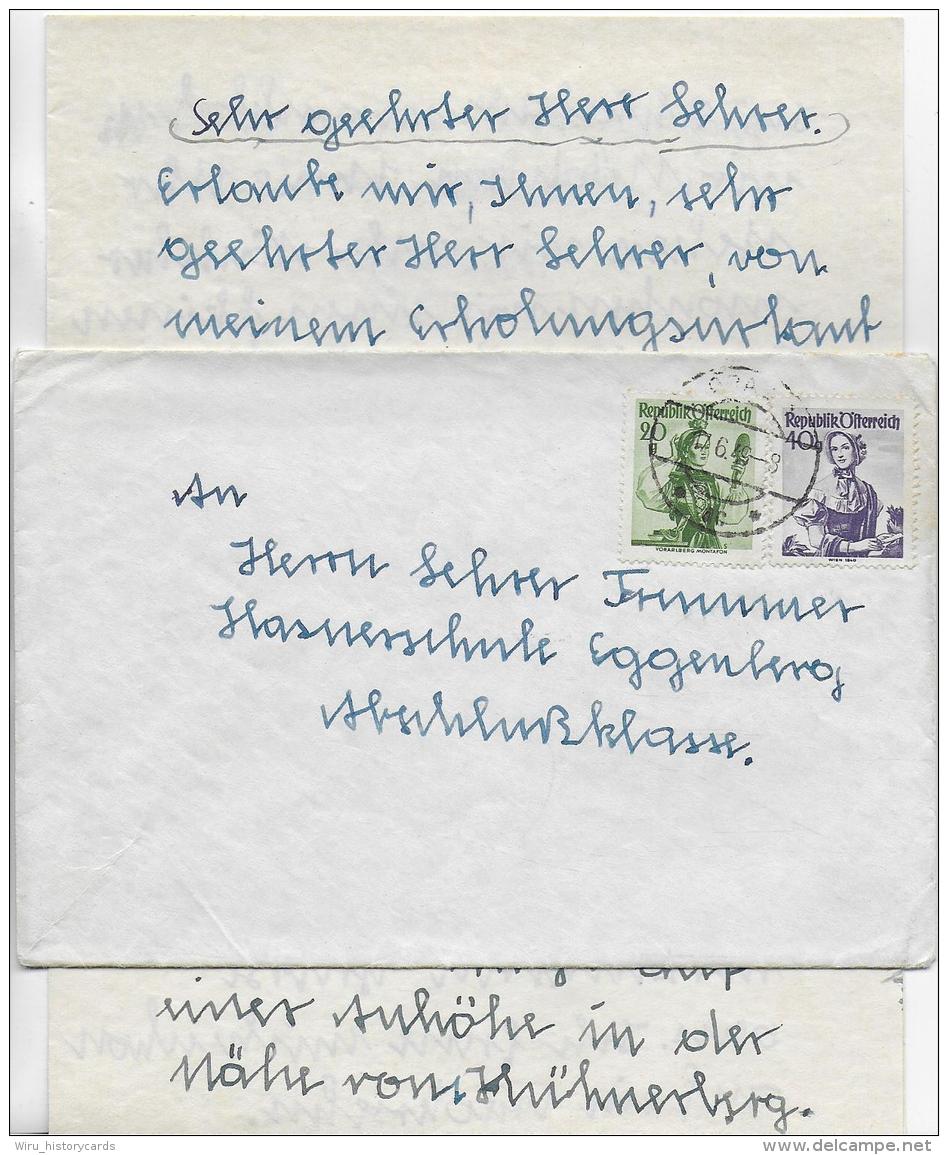 Sehr geehrter Herr Lehrer.
Erlaube mir, Ihnen, sehr
geehrter Herr Lehrer, von
meinem Erholungsurlaub
Republik Österreich
20
g
VORARLBERG MONTAFON
Republik Österreich
40g
WIEN 1840
GRAZ
17.6.49-8
An
Herrn Lehrer Trummer
Hasnerschule Eggenberg
Abschlußklasse.
auf
einer Anhöhe in der
Nähe von Hühnerberg.
Wiru_historycards
www.delcampe.net